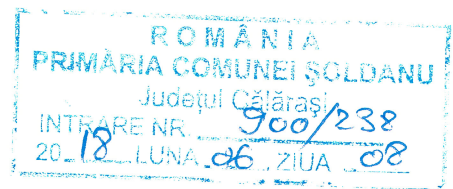 ROMÂNIA
PRIMĂRIA COMUNEI ŞOLDANU
Judeţul Călăraşi
INTRARE NR. 900/238
20 18 LUNA 06, ZIUA 08